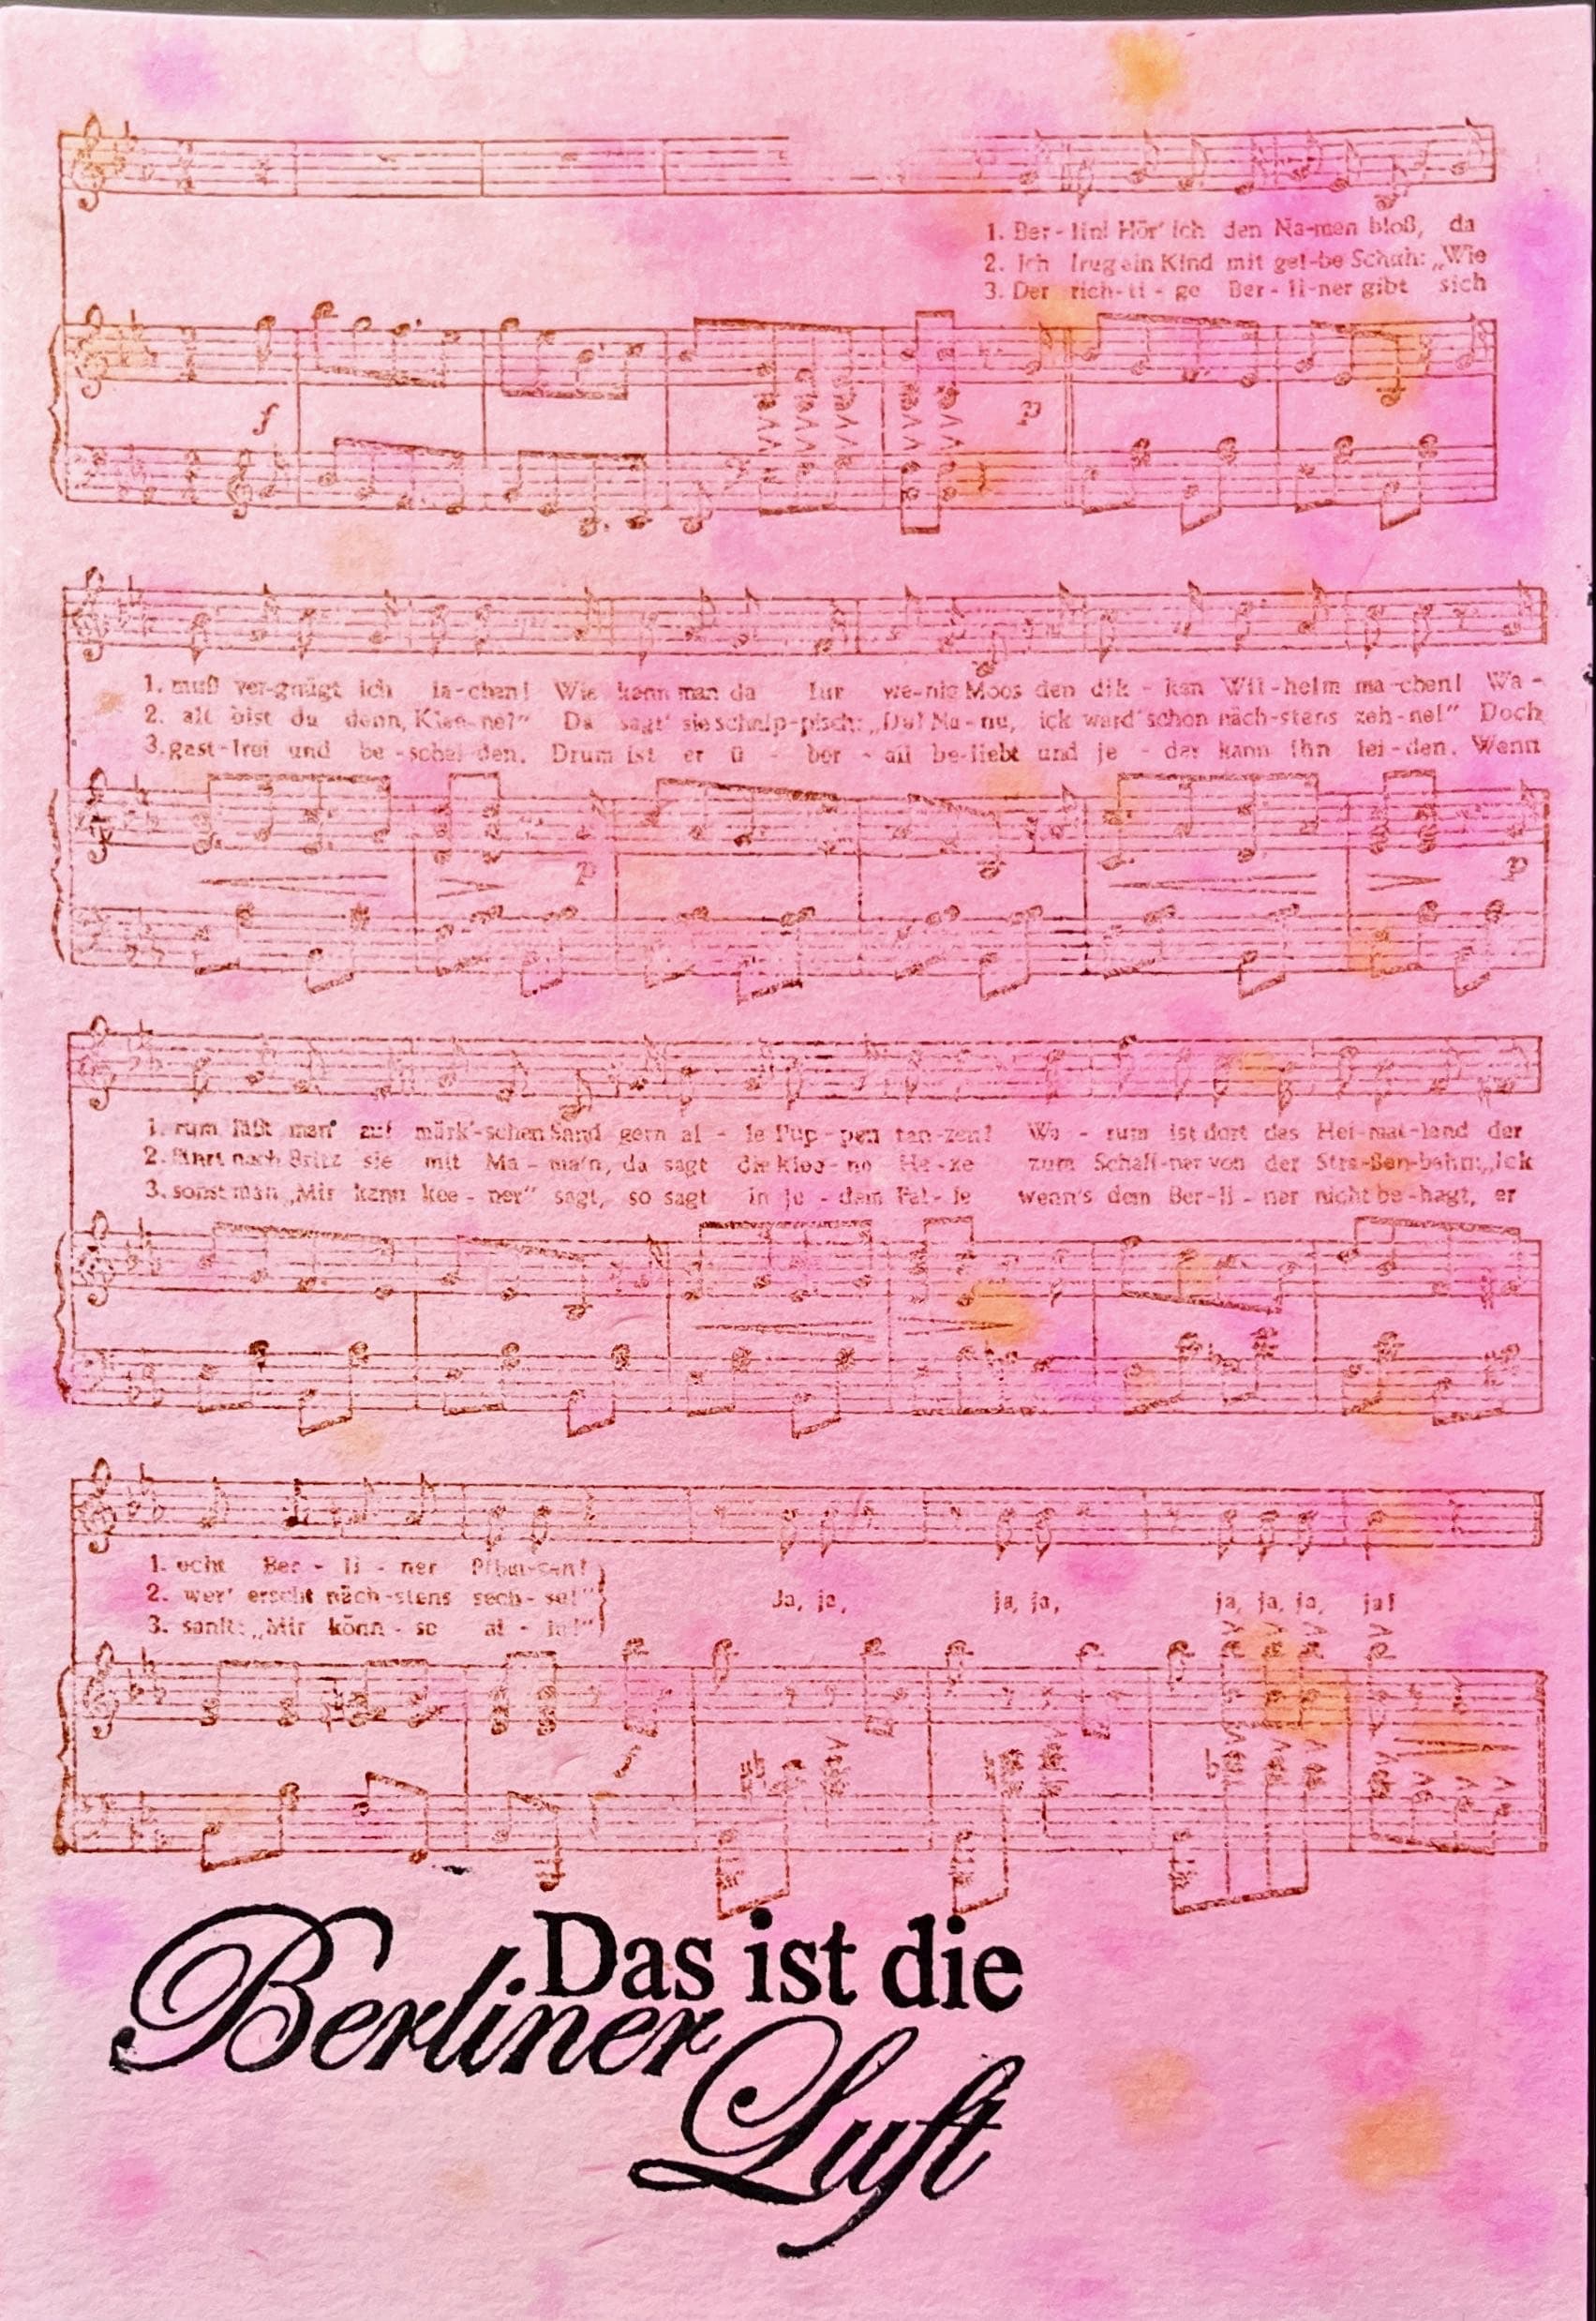 1. Ber - lin! Hör' ich den Na-men bloß, da
2. Ich frug ein Kind mit gel-be Schuh: „Wie
3. Der rich-ti - ge Ber - li-ner gibt sich
f
p
1. muß ver-gnügt ich la-chen! Wie kann man da für we-nig Moos den dik - ken Wil-helm ma-chen! Wa -
2. alt bist du denn, Klee-ne?" Da sagt' sie schnip-pisch: „Du! Na - nu, ick ward' schon näch-stens zeh-ne!" Doch
3. gast-frei und be-schei-den. Drum ist er ü - ber - all be-liebt und je - der kann ihn lei-den. Wenn
p
p
1. rum läßt man' auf märk'-schen Sand gern al - le Pup-pen tan-zen? Wa - rum ist dort das Hei-mat-land der
2. fährt nach Britz sie mit Ma-ma'n, da sagt die klee-ne He-xe zum Schaff-ner von der Stra-ßen-bahn: „Ick
3. sonst man „Mir kann kee - ner" sagt, so sagt in je - dem Fal-le wenn's dem Ber-li - ner nicht be-hagt, er
1. echt Ber - li - ner
2. wer' erscht näch-stens sech - se!" Ja, ja, ja, ja, ja, ja, ja, ja!
3. sanft: „Mir könn - se al - le!"
f
Das ist die
Berliner
Luft